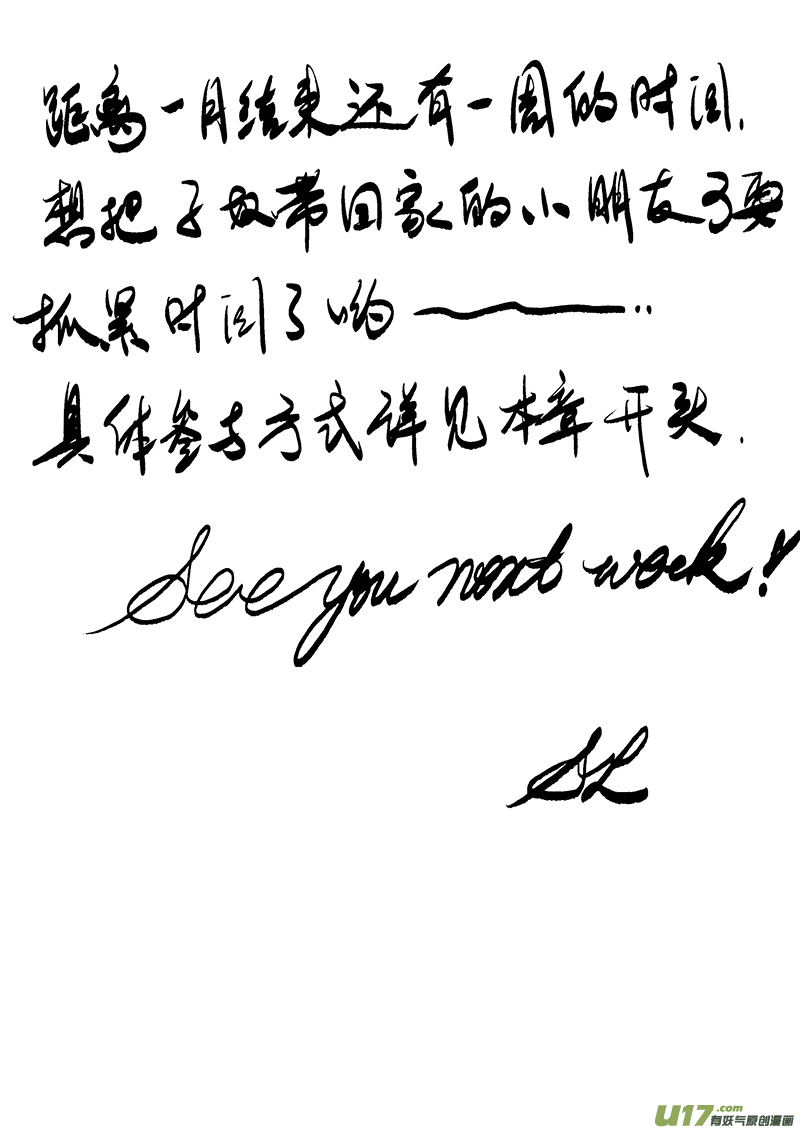 距离一月结束还有一周的时间.
想把子奴带回家的小朋友了要
抓紧时间了哟————..
具体参与方式详见本章开头.
See you next week!
SL
U17.com
有妖气原创漫画